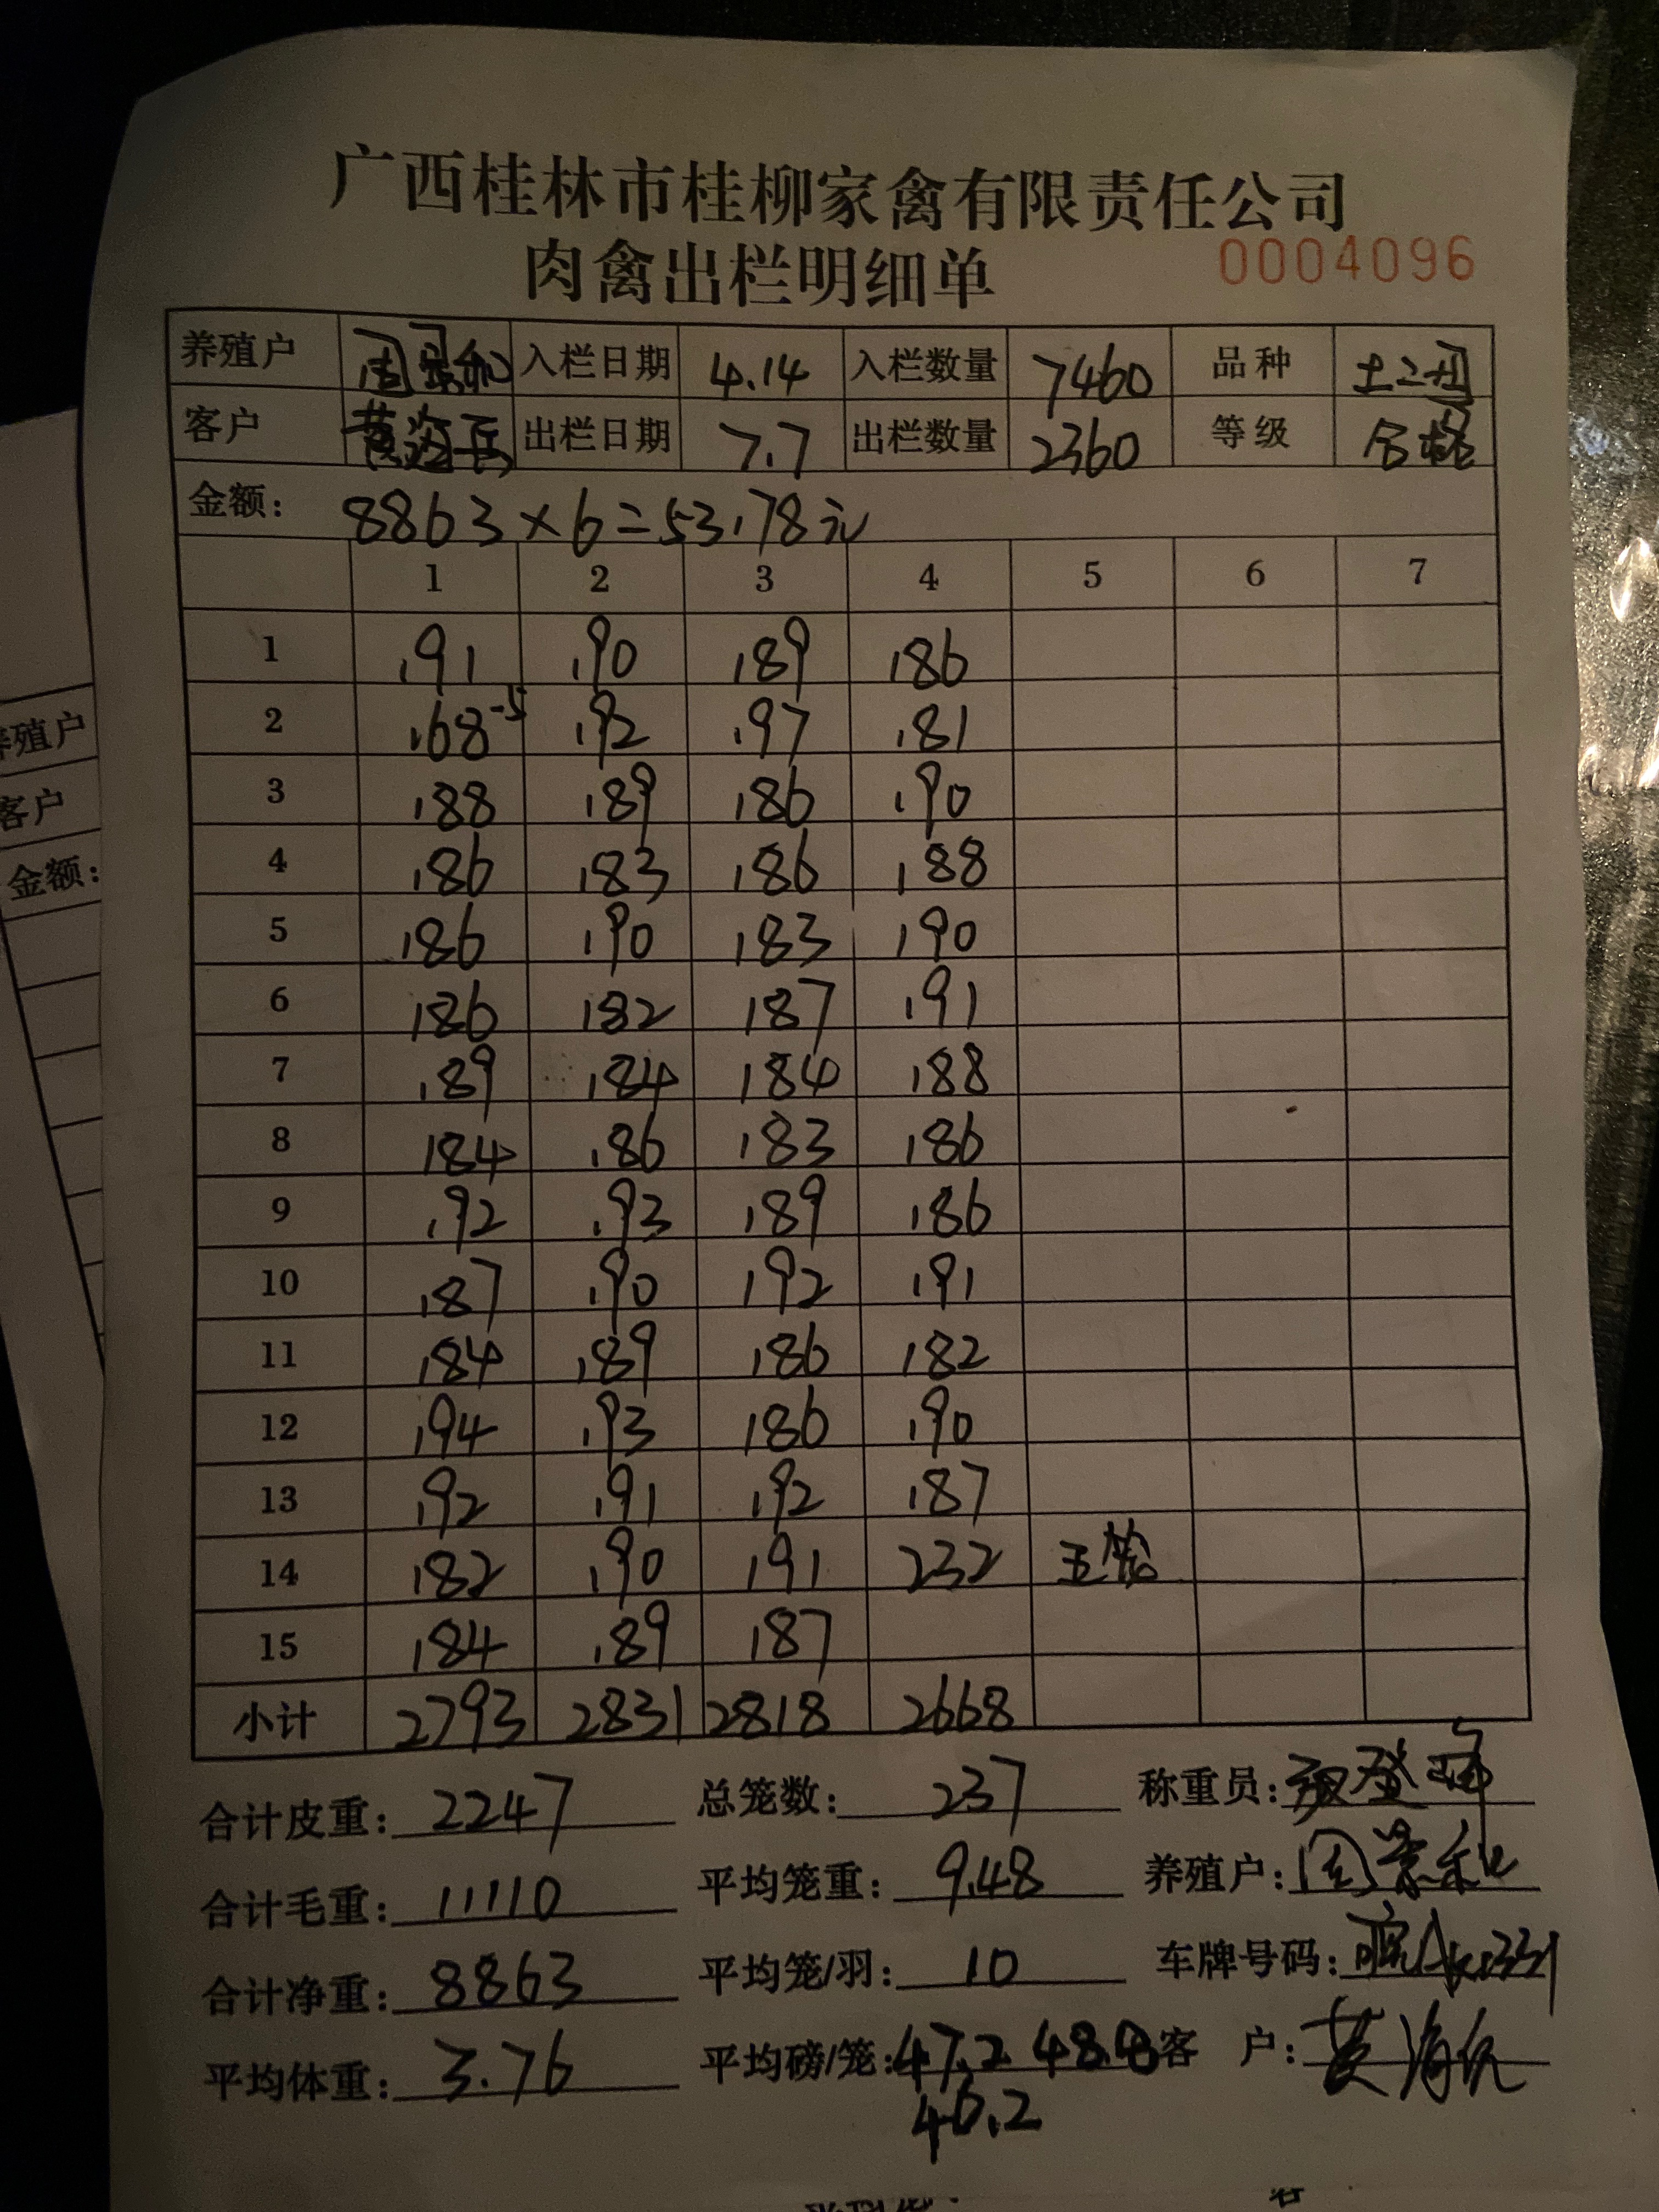 广西桂林市桂柳家禽有限责任公司
肉禽出栏明细单 0004096
养殖户 周景和 入栏日期 4.14 入栏数量 7460 品种 土二
客户 黄海兵 出栏日期 7.7 出栏数量 2360 等级 合格
金额: 8863×6=53178元
1 2 3 4 5 6 7
1 191 190 189 186
2 168-5 192 197 181
3 188 189 186 190
4 186 183 186 188
5 186 190 183 190
6 186 182 187 191
7 189 184 184 188
8 184 186 183 186
9 192 193 189 186
10 187 190 192 191
11 184 189 186 182
12 194 193 186 190
13 192 191 192 187
14 182 190 191 232 五
15 184 189 187
小计 2793 2831 2818 2668
合计皮重: 2247 总笼数: 237 称重员:
合计毛重: 11110 平均笼重: 9.48 养殖户: 周景和
合计净重: 8863 平均笼/羽: 10 车牌号码:
平均体重: 3.76 平均磅/笼: 47.2 48.8 客 户: 黄海
46.2
养殖户
客户
金额: